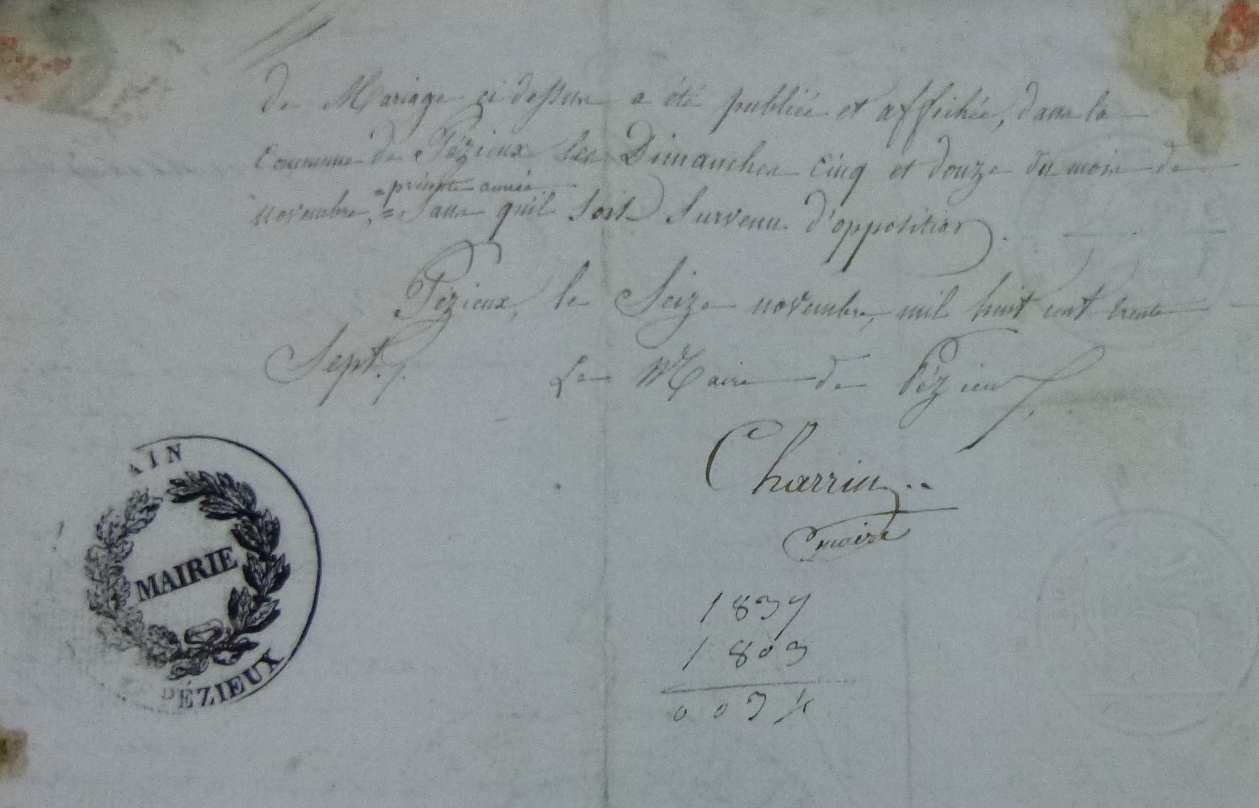 de Mariage ci dessus a été publiée et affichée, dans la
Commune de Pézieux les Dimanches cinq et douze du mois de
= présente année.
novembre, = Sans qu'il soit Survenu d'opposition.
Pézieux, le Seize novembre, mil huit cent trente
Sept.
Le Maire de Pézieux
Charrin
maire
AIN
MAIRIE
PÉZIEUX
1837
1803
0034